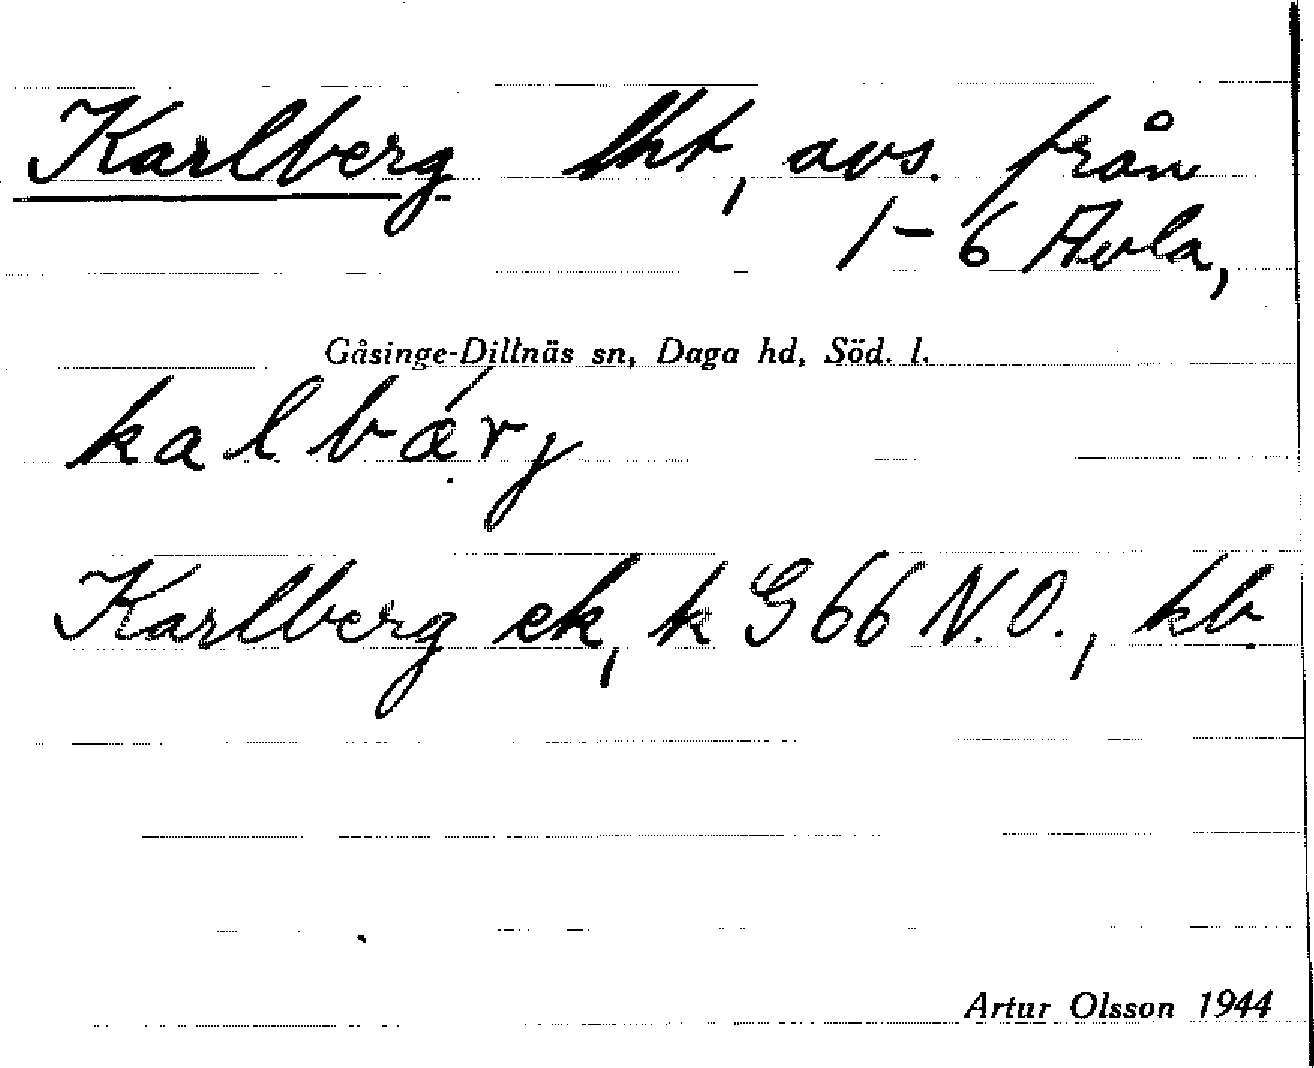 Karlberg lht, avs. från
1-6 Avla,
Gåsinge-Dillnäs sn, Daga hd, Söd. l.
kalbærj
Karlberg ek, k G 66 N.O., kb
Artur Olsson 1944